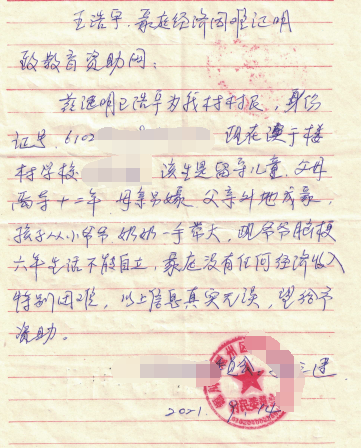 王浩宇.家庭经济困难证明
致教育资助网:
兹证明王浩宇为我村村民,身份
证号,6102 现在 于楼
村学校 该生是留守儿童,父母
离异十二年 母亲另嫁 父亲外地 ,
孩子从小爷爷奶奶一手带大,现爷爷脑梗
六年生活不能自立,家庭没有任何经济收入
特别困难,以上信息真实无误,望给予
资助。
村民委员会
2021. 14